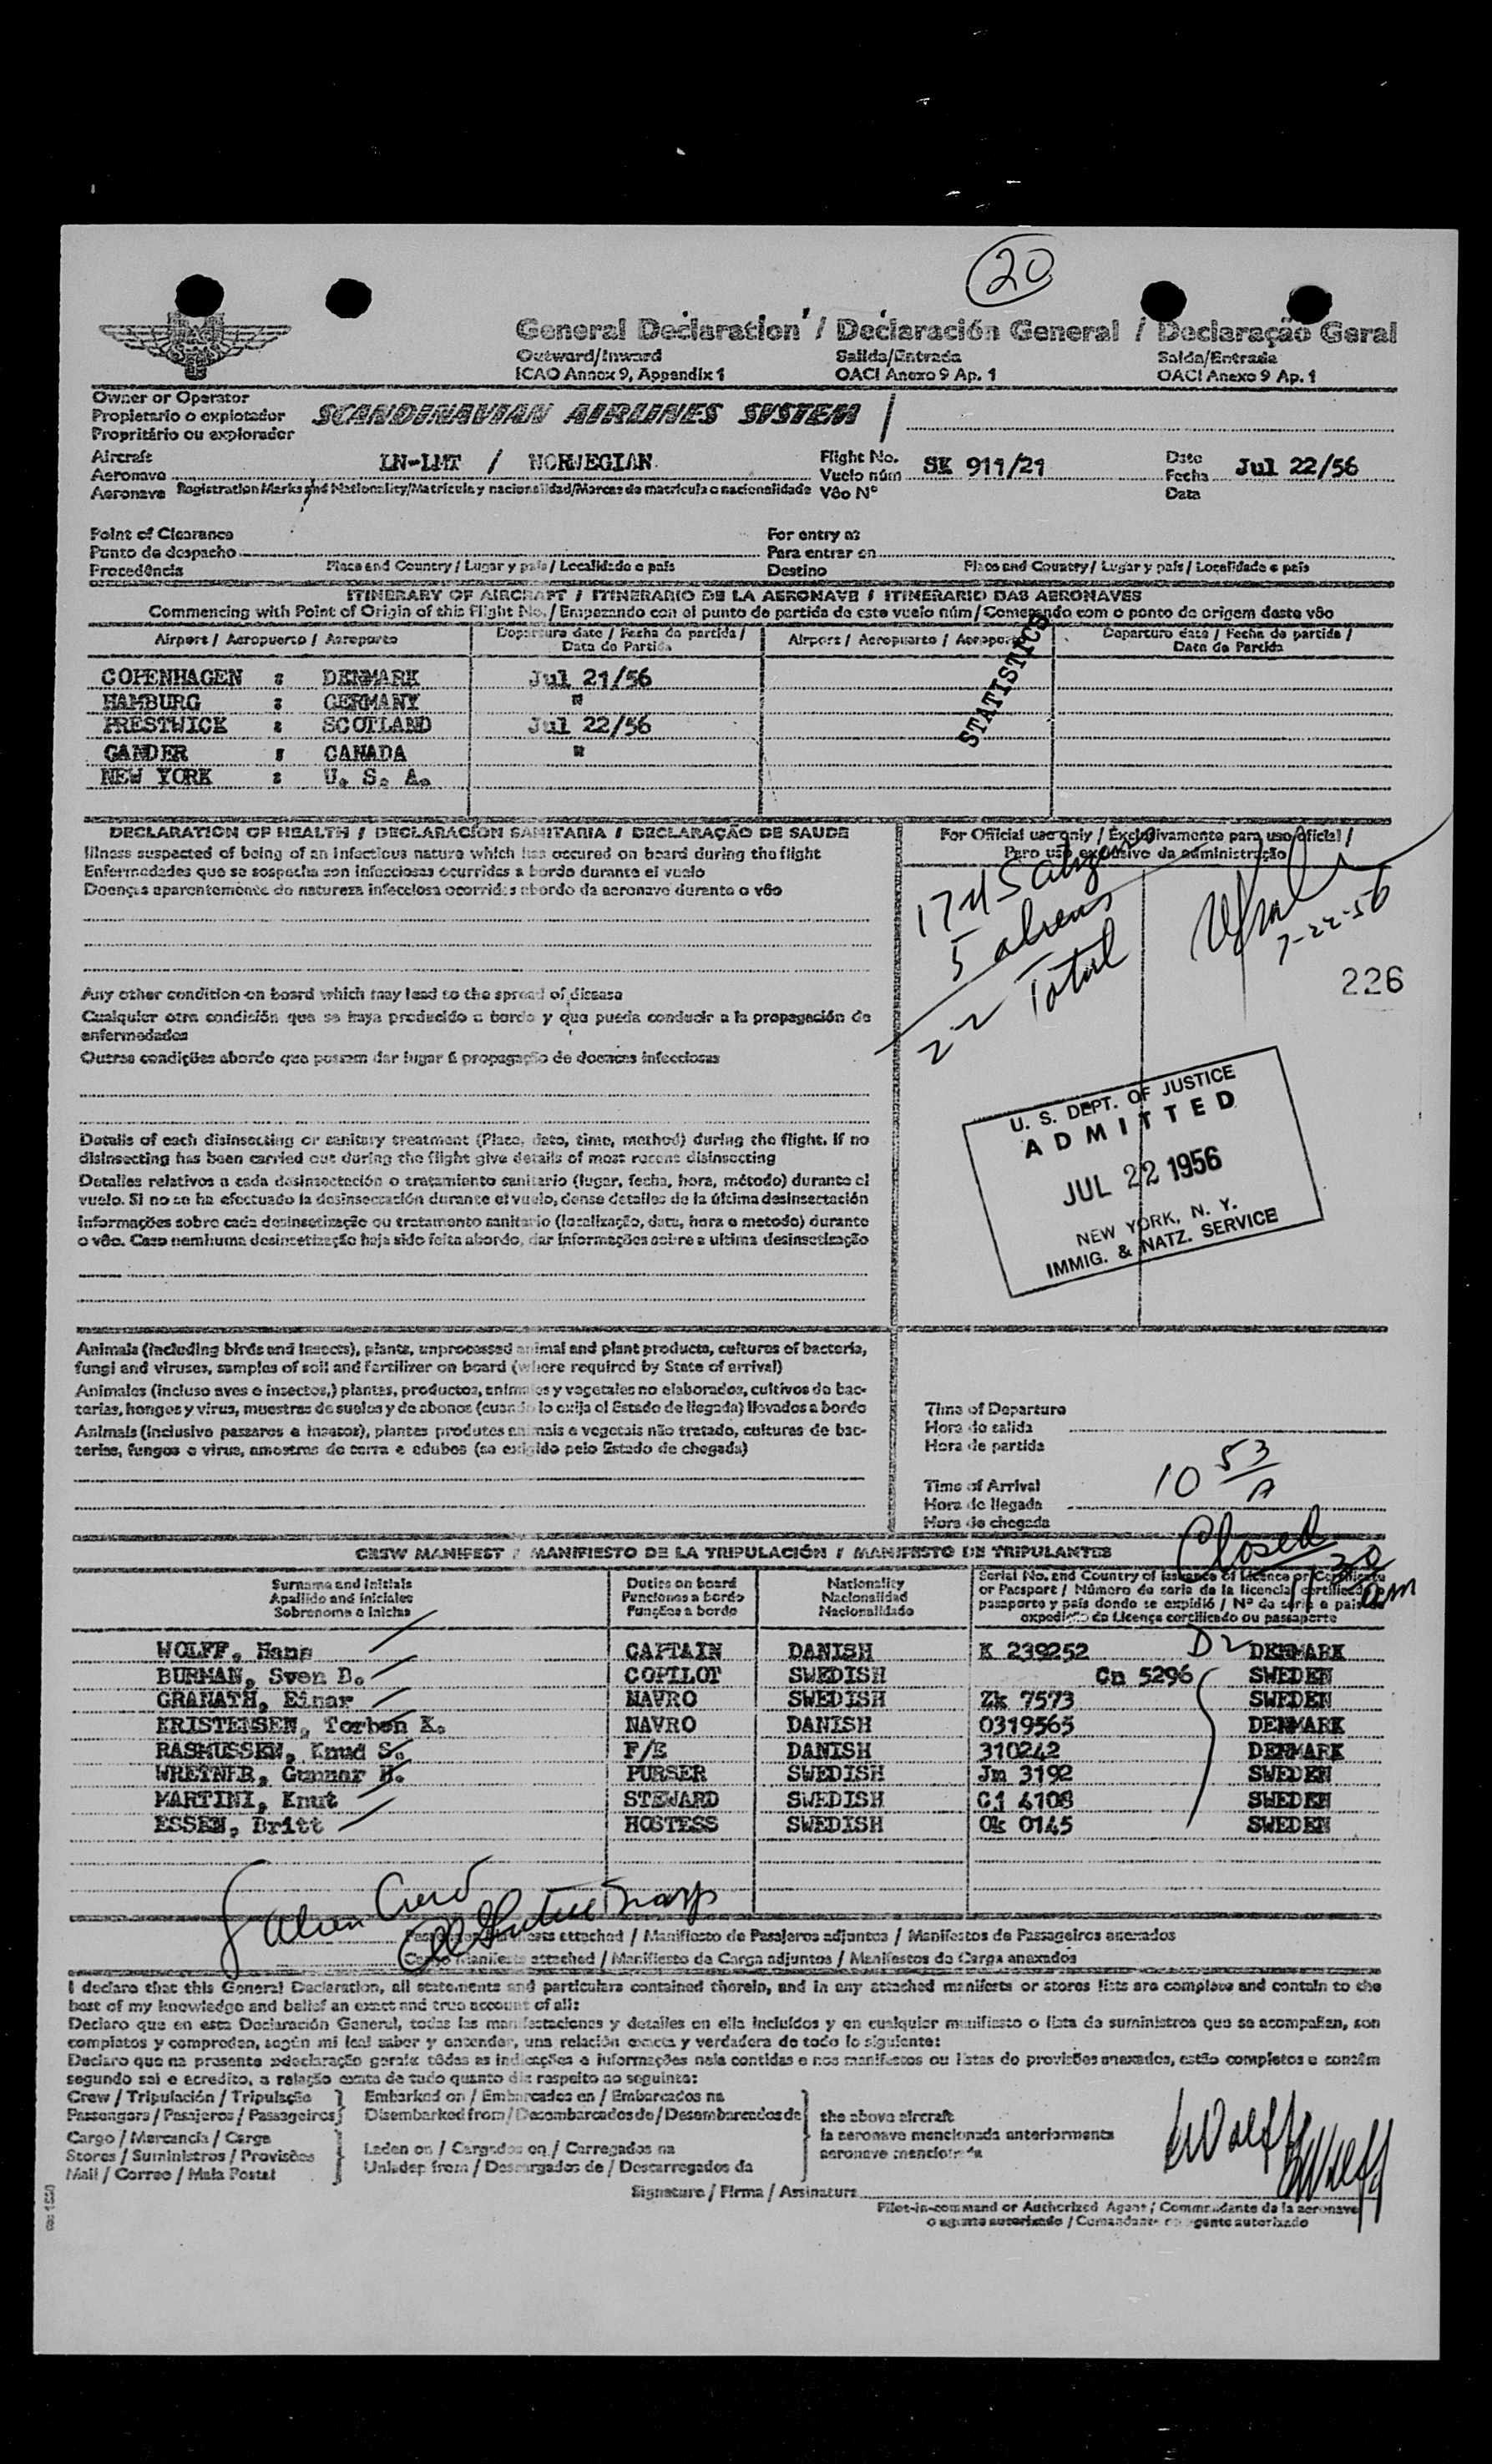 20
General Declaration / Declaración General / Declaração Geral
Outward/Inward Salida/Entrada Saída/Entrada
ICAO Annex 9, Appendix 1 OACI Anexo 9 Ap. 1 OACI Anexo 9 Ap. 1
Owner or Operator
Propietario o explotador SCANDINAVIAN AIRLINES SYSTEM /
Propritário ou explorador
Aircraft Flight No. Date
Aeronave LN-LMT / NORWEGIAN Vuelo núm SK 911/21 Fecha Jul 22/56
Aeronave Registration Marks and Nationality/Matricula y nacionalidad/Marcas de matricula o nacionalidade Vôo Nº Data
Point of Clearance For entry at
Punto de despacho Para entrar en
Procedência Place and Country / Lugar y país / Localidade e país Destino Place and Country / Lugar y país / Localidade e país
ITINERARY OF AIRCRAFT / ITINERARIO DE LA AERONAVE / ITINERARIO DAS AERONAVES
Commencing with Point of Origin of this Flight No. / Empezando con el punto de partida de este vuelo núm / Começando com o ponto de origem deste vôo
Airport / Aeropuerto / Aeroporto Departure date / Fecha de partida / Data de Partida Airport / Aeropuerto / Aeroporto Departure date / Fecha de partida / Data de Partida
STATISTICS
COPENHAGEN : DENMARK Jul 21/56
HAMBURG : GERMANY "
PRESTWICK : SCOTLAND Jul 22/56
GANDER : CANADA "
NEW YORK : U. S. A.
DECLARATION OF HEALTH / DECLARACIÓN SANITARIA / DECLARAÇÃO DE SAUDE
Illness suspected of being of an infectious nature which has occured on board during the flight
Enfermedades que se sospecha son infecciosas ocurridas a bordo durante el vuelo
Doenças aparentemente de natureza infecciosa ocorridas abordo da aeronave durante o vôo
For Official use only / Exclusivamente para uso oficial /
Para uso exclusivo da administração
17
5 aliens
22 Total
7-22-56
226
Any other condition on board which may lead to the spread of disease
Cualquier otra condición que se haya producido a bordo y que pueda conducir a la propagación de
enfermedades
Outras condições abordo que possam dar lugar á propagação de doencas infecciosas
U. S. DEPT. OF JUSTICE
ADMITTED
JUL 22 1956
NEW YORK, N. Y.
IMMIG. & NATZ. SERVICE
Details of each disinsecting or sanitary treatment (Place, date, time, method) during the flight. If no
disinsecting has been carried out during the flight give details of most recent disinsecting
Detalles relativos a cada desinsectación o tratamiento sanitario (lugar, fecha, hora, método) durante el
vuelo. Si no se ha efectuado la desinsectación durante el vuelo, dense detalles de la última desinsectación
Informações sobre cada desinsetização ou tratamento sanitario (localização, data, hora e metodo) durante
o vôo. Caso nemhuma desinsetização haja sido feita abordo, dar informações sobre a ultima desinsetização
Animals (including birds and insects), plants, unprocessed animal and plant products, cultures of bacteria,
fungi and viruses, samples of soil and fertilizer on board (where required by State of arrival)
Animales (incluso aves e insectos,) plantas, productos, animales y vegetales no elaborados, cultivos de bac-
terias, hongos y virus, muestras de suelos y de abonos (cuando lo exija el Estado de llegada) llevados a bordo
Animais (inclusive passaros e insetos), plantes produtos animais e vegetais não tratado, culturas de bac-
terias, fungos o virus, amostras de terra e adubos (se exigido pelo Estado de chegada)
Time of Departure
Hora de salida
Hora de partida
Time of Arrival
Hora de llegada 10 53 A
Hora de chegada
Closed 11 30 am
CREW MANIFEST / MANIFIESTO DE LA TRIPULACIÓN / MANIFESTO DE TRIPULANTES
Surname and Initials Duties on board Nationality Serial No. and Country of issuance of Licence or Certificate
Apallido and iniciales Funciones a bordo Nacionalidad or Passport / Número de serie de la licencia, certificado o
Sobrenome e inicias Funções a bordo Nacionalidade pasaporte y país donde se expidió / Nº de série e pais de
expedição da Licença certificado ou passaporte
WOLFF, Hans CAPTAIN DANISH K 239252 D2 DENMARK
BURMAN, Sven D. COPILOT SWEDISH Cn 5296 SWEDEN
GRANATH, Einar NAVRO SWEDISH Zk 7573 SWEDEN
KRISTENSEN, Torben K. NAVRO DANISH 0319565 DENMARK
RASMUSSEN, Knud S. F/E DANISH 310242 DENMARK
WRETNER, Gunnar H. PURSER SWEDISH Jm 3192 SWEDEN
MARTINI, Knut STEWARD SWEDISH Ci 4108 SWEDEN
ESSEN, Britt HOSTESS SWEDISH Ok 0145 SWEDEN
8 alien Crew
Passenger Manifests attached / Manifiesto de Pasajeros adjuntos / Manifestos de Passageiros anexados
Cargo Manifests attached / Manifiesto de Carga adjuntos / Manifestos de Carga anexados
I declare that this General Declaration, all statements and particulars contained therein, and in any attached manifests or stores lists are complete and contain to the
best of my knowledge and belief an exact and true account of all:
Declaro que en esta Declaración General, todas las manifestaciones y detalles en ella incluídos y en cualquier manifiesto o lista de suministros que se acompañan, son
completos y comproden, según mi leal saber y entender, una relación exacta y verdadera de todo lo siguiente:
Declaro que na presente »declaração geral« tôdas as indicações e informações nela contidas e nos manifestos ou listas de provisões anexados, estão completos e contêm
segundo sai e acredito, a relação exata de tudo quanto diz respeito ao seguinte:
Crew / Tripulación / Tripulação Embarked on / Embarcados en / Embarcados na
Passengers / Pasajeros / Passageiros Disembarked from / Desembarcados de / Desembarcados de the above aircraft
Cargo / Mercancia / Carga la aeronave mencionada anteriormente
Stores / Suministros / Provisões Laden on / Cargados en / Carregados na aeronave mencionada
Mail / Correo / Mala Postal Unladen from / Descargados de / Descarregados da
Wolff HWolff
Signature / Firma / Assinatura
Pilot-in-command or Authorized Agent / Commandante de la aeronave
o agente autorizado / Comandante ou agente autorizado